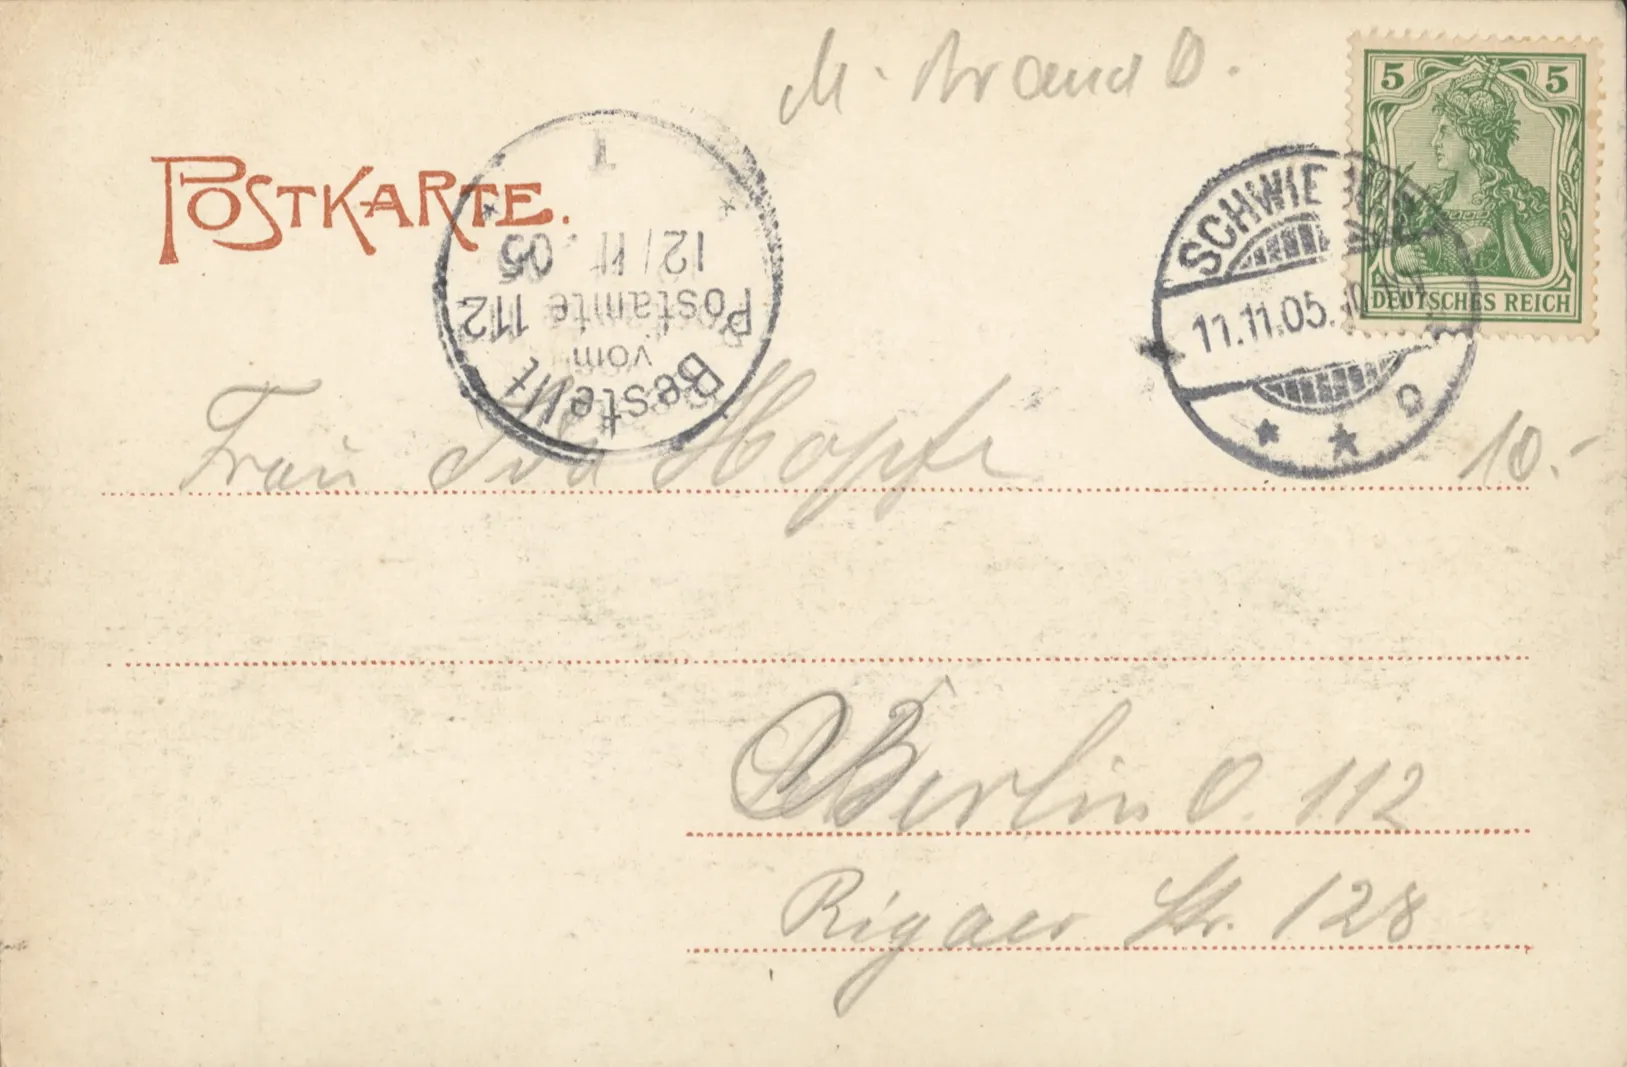 M. Brand B.
5 5
DEUTSCHES REICH
POSTKARTE.
Bestellt
vom
Postamte 112
12/11.05
1
11.11.05.
c
Frau Ida Hopfe
10.-
Berlin O. 112
Rigaer Str. 128